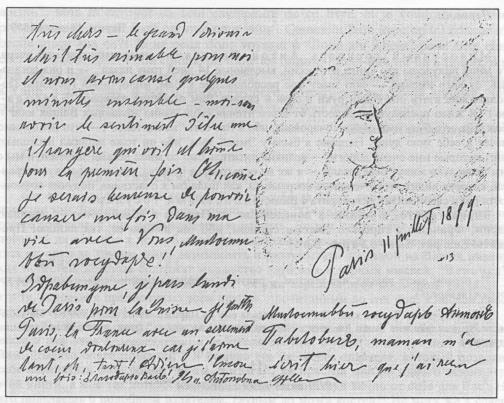 très chers – le grand écrivain
était très aimable pour moi
et nous avons causé quelques
minutes ensemble – moi sans
avoir le sentiment d'être une
étrangère qui voit cet homme
pour la première fois Oh, comme
je serais heureuse de pouvoir
causer une fois dans ma
vie avec Vous, Милостивый
государь!!
Здравствуйте, je pars lundi
de Paris pour la Suisse – je quitte
Paris, la France avec un serrement
de cœur douloureux car je l'aime
tant, oh, tant! Adieu! Encore
une fois:
Paris 11 juillet 1899.
Милостивый государь Антон
maman m'a
écrit hier que j'ai reçu